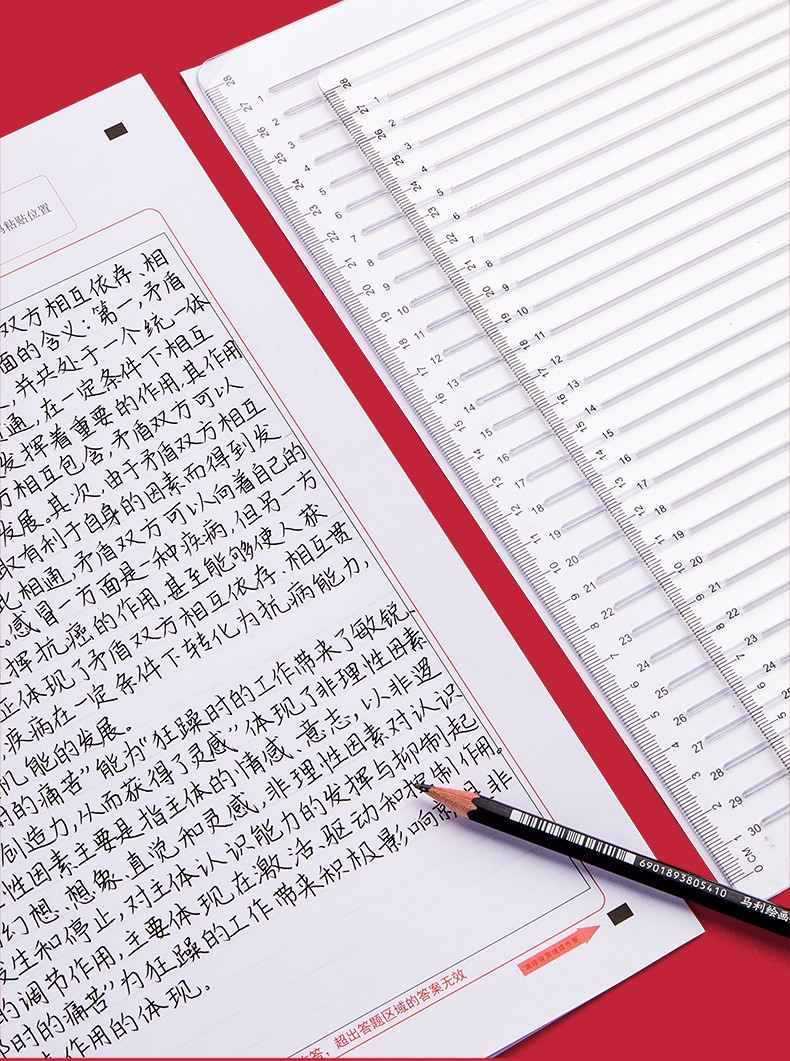 粘贴位置
双方相互依存、相
面的含义：第一，矛盾
，并共处于一个统一体
通，在一定条件下相互
发挥着重要的作用，其作用
方相互包含，矛盾双方可以
发展。其次，由于矛盾双方相互
取有利于自身的因素而得到发
此相通，矛盾双方可以向着自己的
。感冒一方面是一种疾病，但另一方
挥抗癌的作用，甚至能够使人获
正体现了矛盾双方相互依存、相互贯
疾病在一定条件下转化为抗病能力，
机能的发展。
时的痛苦”能为“狂躁时的工作带来了敏锐、
创造力，从而获得了灵感”体现了非理性因素
性因素主要是指主体的情感、意志，以非逻
幻想、想象、直觉和灵感，非理性因素对认识
发生和停止，对主体认识能力的发挥与抑制起
的调节作用，主要体现在激活、驱动和控制作用。
时的痛苦”为狂躁的工作带来积极影响 是非
作用的体现。
答，超出答题区域的答案无效
6901893805410 马利绘画
28 27 26 25 24 23 22 21 20 19 18 17 16 15 14 13 12 11 10 9 8 7 6 5 4 3 2 1 0 CM
1 2 3 4 5 6 7 8 9 10 11 12 13 14 15 16 17 18 19 20 21 22 23 24 25 26 27 28 29 30
28 27 26 25 24 23 22 21 20 19 18 17 16 15 14 13 12 11 10 9 8 7 6 5
1 2 3 4 5 6 7 8 9 10 11 12 13 14 15 16 17 18 19 20 21 22 23 24